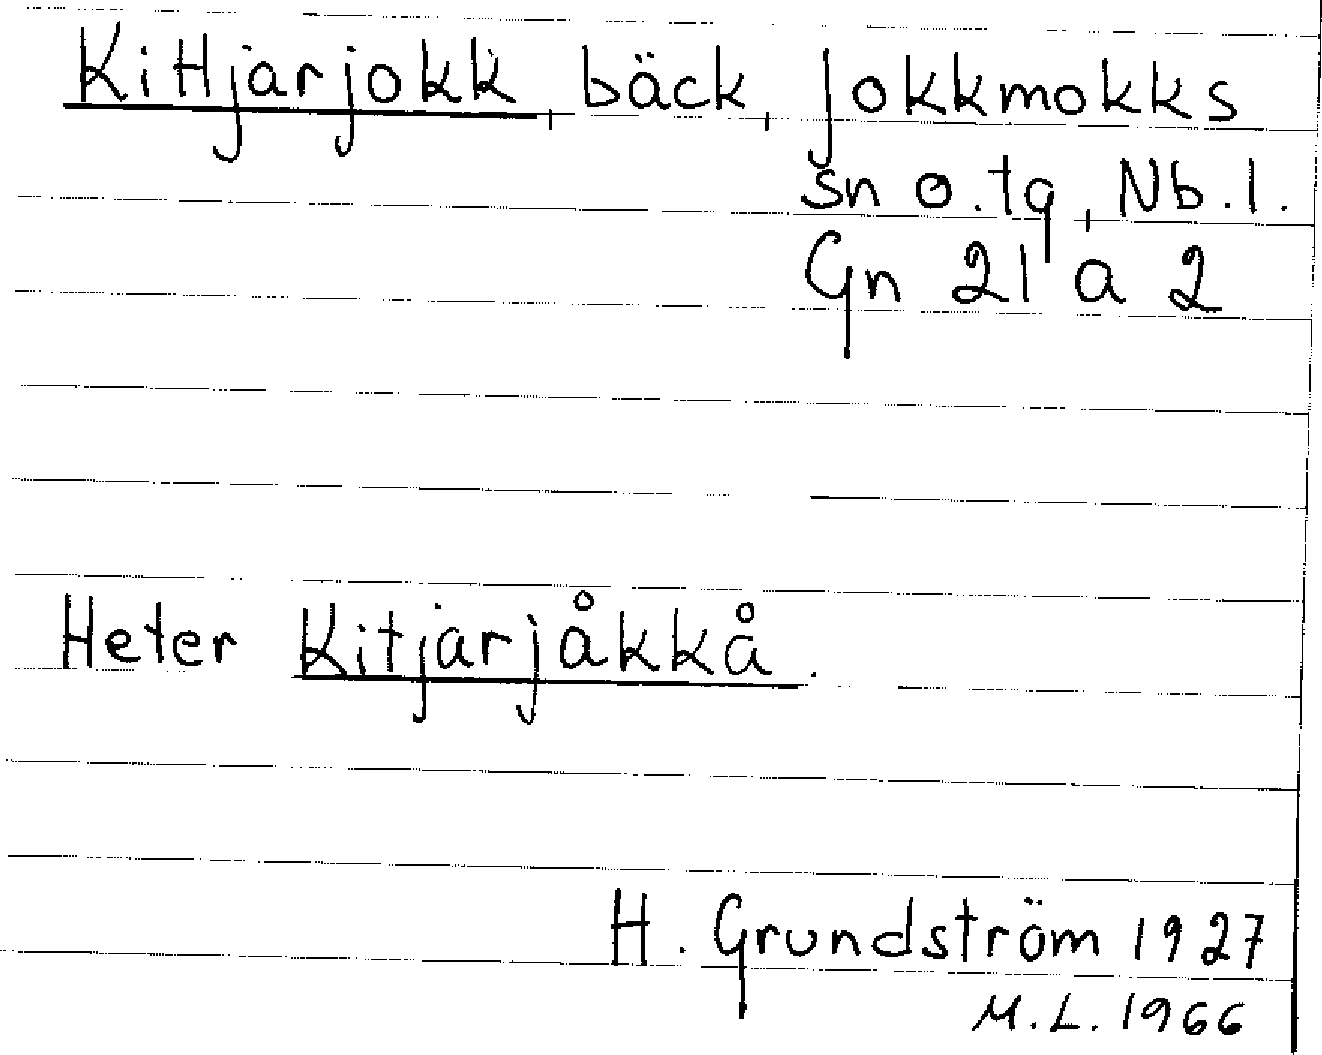 Kittjarjokk, bäck, Jokkmokks
sn o. tg, Nb. l.
Gn 21 a 2
Heter Kitjarjåkkå.
H. Grundström 1927
M. L. 1966